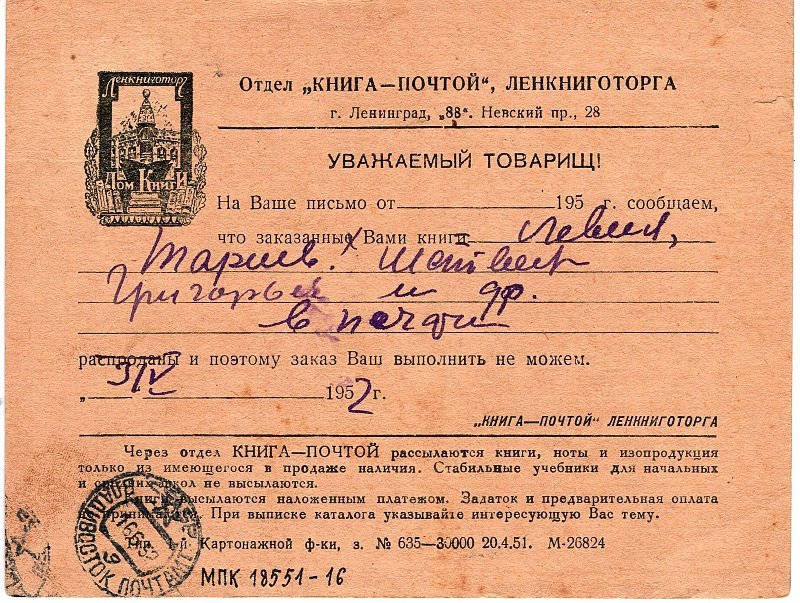 Ленкниготорг
Дом Книги
Отдел „КНИГА—ПОЧТОЙ", ЛЕНКНИГОТОРГА
г. Ленинград, „88". Невский пр., 28
УВАЖАЕМЫЙ ТОВАРИЩ!
На Ваше письмо от 195 г. сообщаем,
что заказанные Вами книги Левин,
Григорьев и др.
в печати
распроданы и поэтому заказ Ваш выполнить не можем.
„ 3/V 1952 г.
„КНИГА—ПОЧТОЙ" ЛЕНКНИГОТОРГА
Через отдел КНИГА—ПОЧТОЙ рассылаются книги, ноты и изопродукция
только из имеющегося в продаже наличия. Стабильные учебники для начальных
и средних школ не высылаются.
Книги высылаются наложенным платежом. Задаток и предварительная оплата
При выписке каталога указывайте интересующую Вас тему.
Тип. 1-й Картонажной ф-ки, з. № 635—30000 20.4.51. М-26824
ВЛАДИВОСТОК ПОЧТАМТ
МПК 18551-16